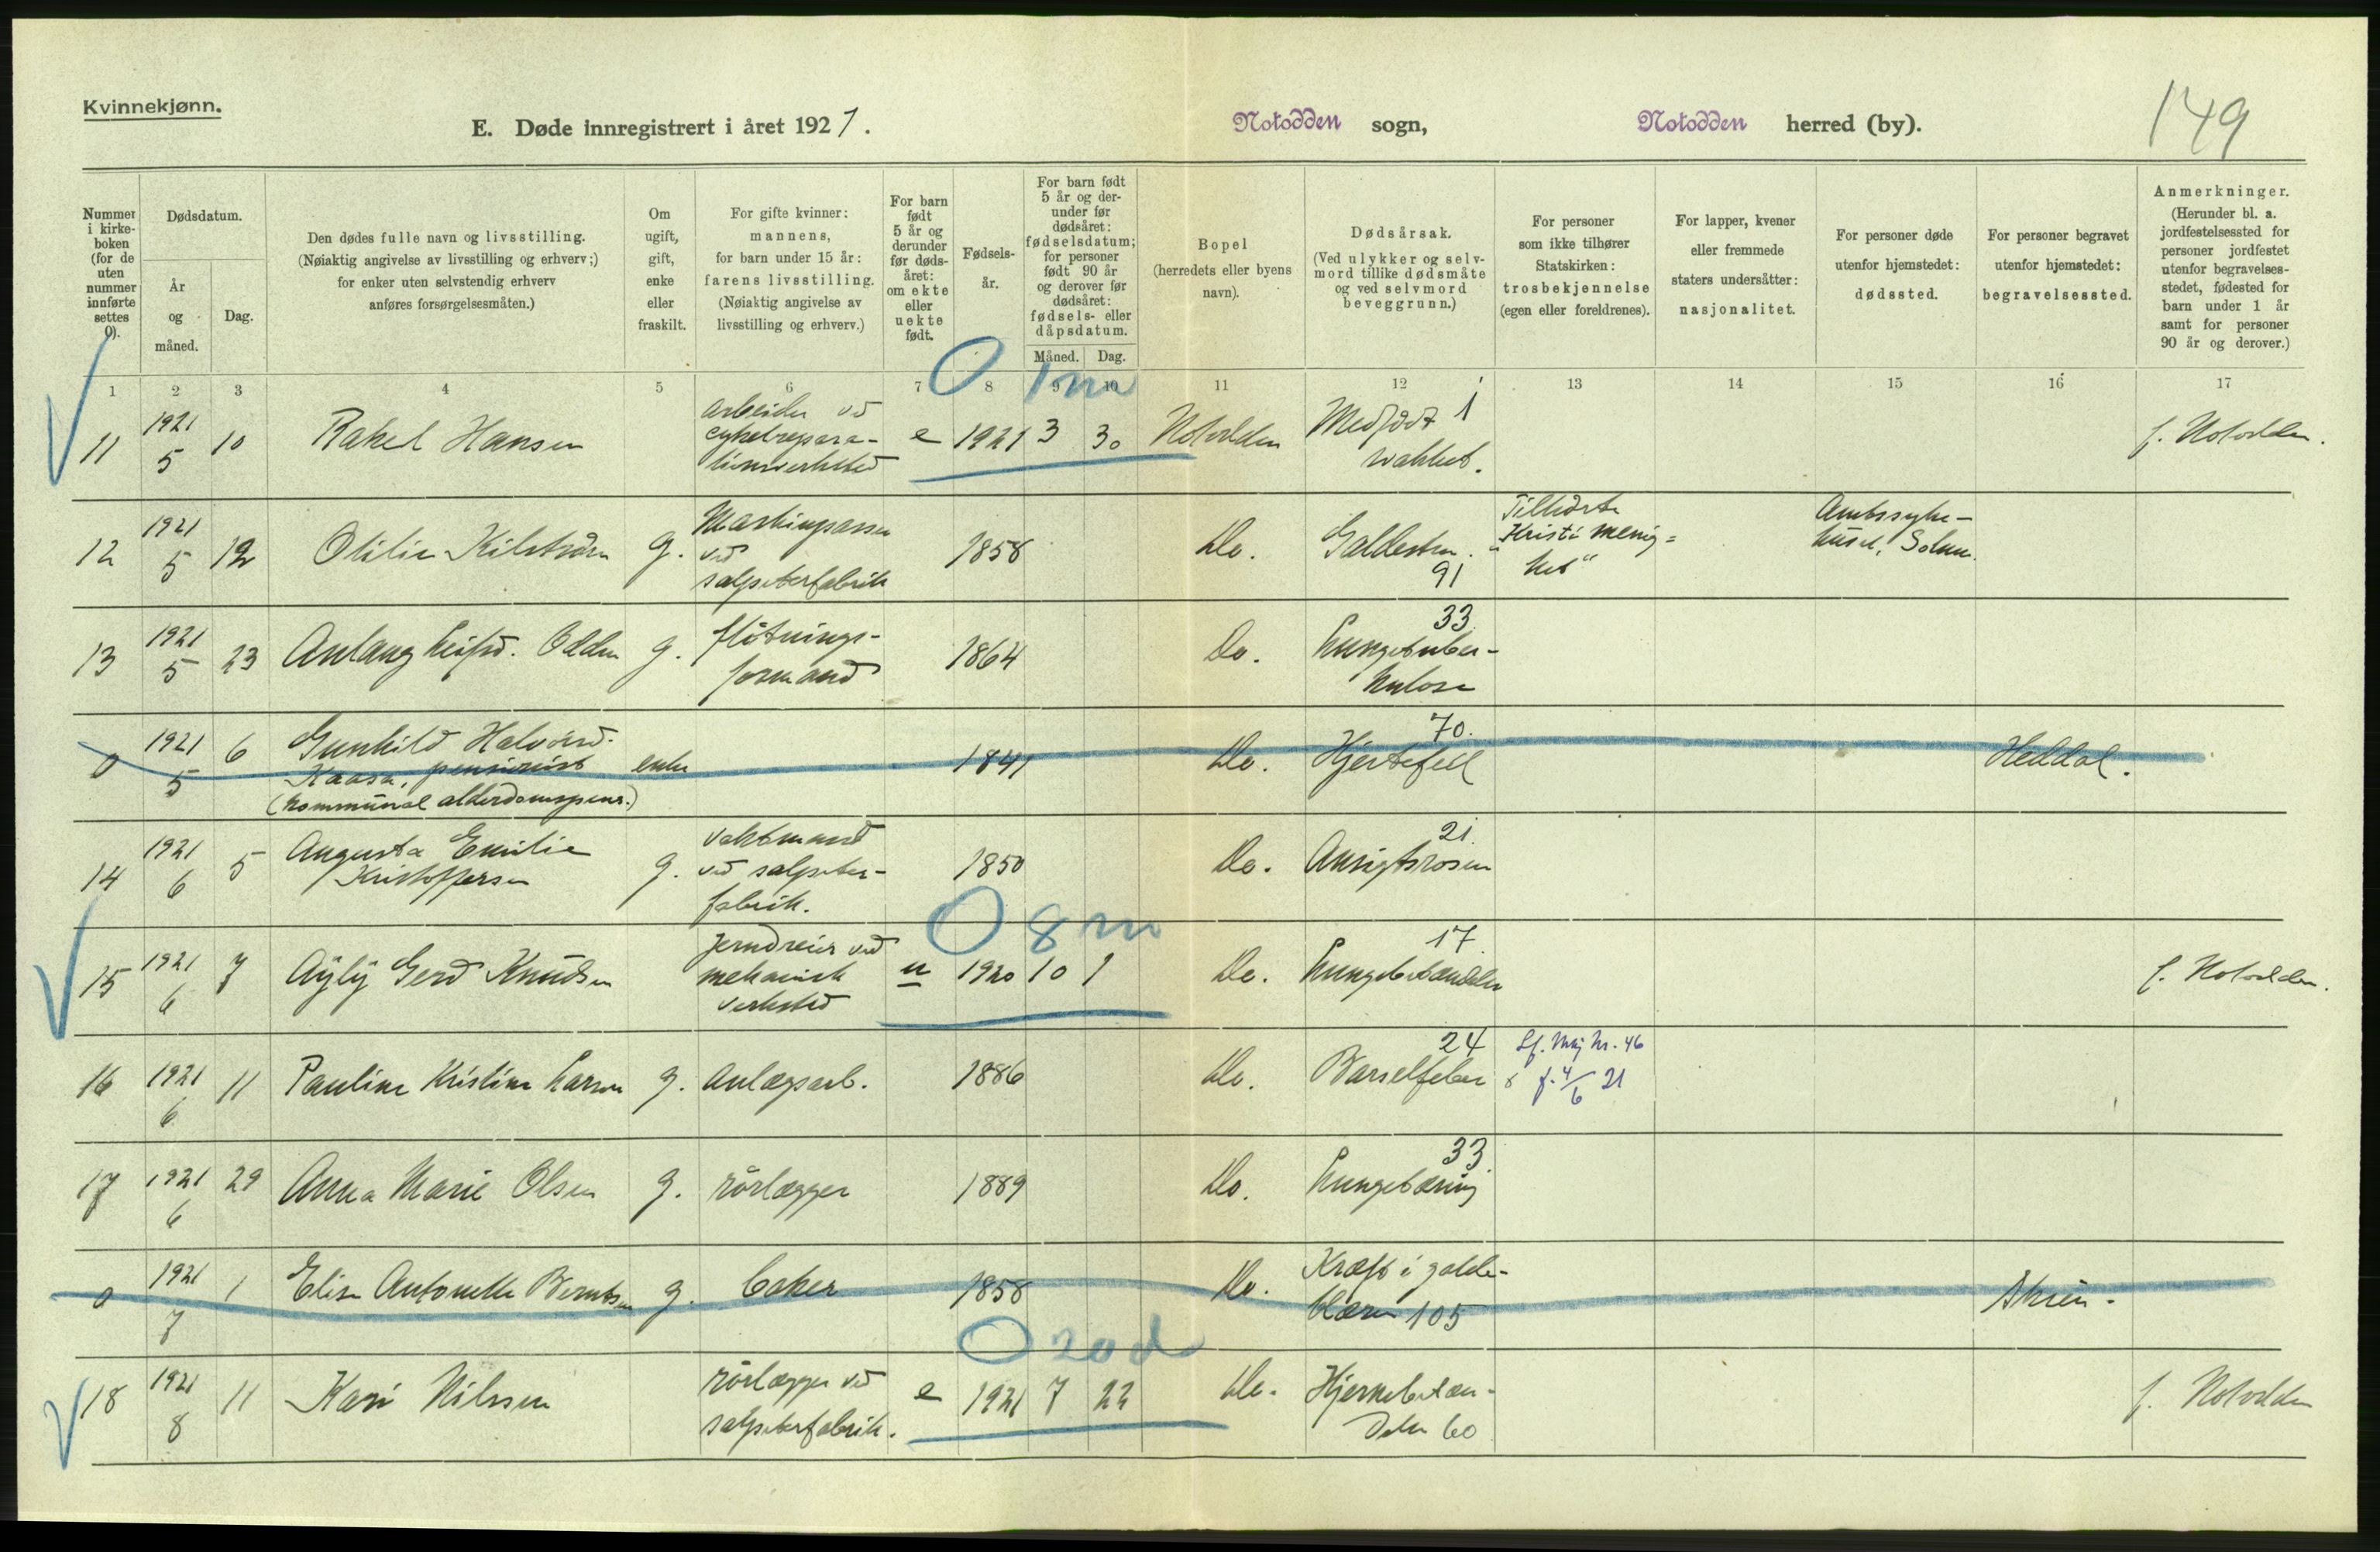 Kvinnekjønn.
E. Døde innregistrert i året 1921.
Notodden sogn,
Notodden herred (by).
149
Nummer i kirke-boken (for de uten nummer innførte settes 0).
Dødsdatum.
År og måned.
Dag.
Den dødes fulle navn og livsstilling.
(Nøiaktig angivelse av livsstilling og erhverv;)
for enker uten selvstendig erhverv
anføres forsørgelsesmåten.)
Om ugift, gift, enke eller fraskilt.
For gifte kvinner: mannens,
for barn under 15 år: farens livsstilling.
(Nøiaktig angivelse av livsstilling og erhverv.)
For barn født 5 år og derunder før døds-året: om ekte eller uekte født.
Fødsels-år.
For barn født 5 år og der-under før dødsåret: fødselsdatum; for personer født 90 år og derover før dødsåret: fødsels- eller dåpsdatum.
Måned. Dag.
Bopel
(herredets eller byens navn).
Dødsårsak.
(Ved ulykker og selv-mord tillike dødsmåte og ved selvmord beveggrunn.)
For personer som ikke tilhører Statskirken: trosbekjennelse (egen eller foreldrenes).
For lapper, kvener eller fremmede staters undersåtter: nasjonalitet.
For personer døde utenfor hjemstedet: dødssted.
For personer begravet utenfor hjemstedet: begravelsessted.
Anmerkninger.
(Herunder bl. a. jordfestelsessted for personer jordfestet utenfor begravelses-stedet, fødested for barn under 1 år samt for personer 90 år og derover.)
1 2 3 4 5 6 7 8 9 10 11 12 13 14 15 16 17
0 1 m
11 1921 5 10 Rakel Hansen arbeider ved cykelrepara-tionsverksted e 1921 3 30 Notodden Medfødt svakhet. 1 f. Notodden.
12 1921 5 12 Otilie Kilström g. Maskinpasser ved salpeterfabrik 1858 Do. Galdesten. 91 Tilhørte "Kristi menig=het" Amtssyke-huset, Solum.
13 1921 5 23 Aslaug Leifsd. Odden g. fløtnings-formand 1864 Do. 33 Lungetuber-kulose
0 1921 5 6 Gunhild Halvorsd. Kaasa, pensionist (kommunal alderdomspens.) enke 1841 Do. 70. Hjertefeil Heddal.
14 1921 6 5 Augusta Emilie Kristoffersen g. Vaktmand ved salpeter-fabrik. 1850 Do. 21. Ansigtsrosen
0 8 m
15 1921 6 7 Aÿlÿ Gerd Knudsen jerndreier ved mekanisk verksted u 1920 10 1 Do. 17. Lungebetændelse f. Notodden.
16 1921 6 11 Pauline Kristine Larsen g. Anlægsarb. 1886 Do. 24 Barselfeber f. 4/6 21
17 1921 6 29 Anna Marie Olsen g. rörlægger 1889 Do. 33. Lungetæring
0 1921 7 1 Elise Antonette Berntsen g. baker 1858 Do. Kræft i galde-blæren 105 Skien.
0 20 d
18 1921 8 11 Kari Nilssen rörlægger ved salpeterfabrik. e 1921 7 22 Do. Hjernebetæn-delse 60 f. Notodden